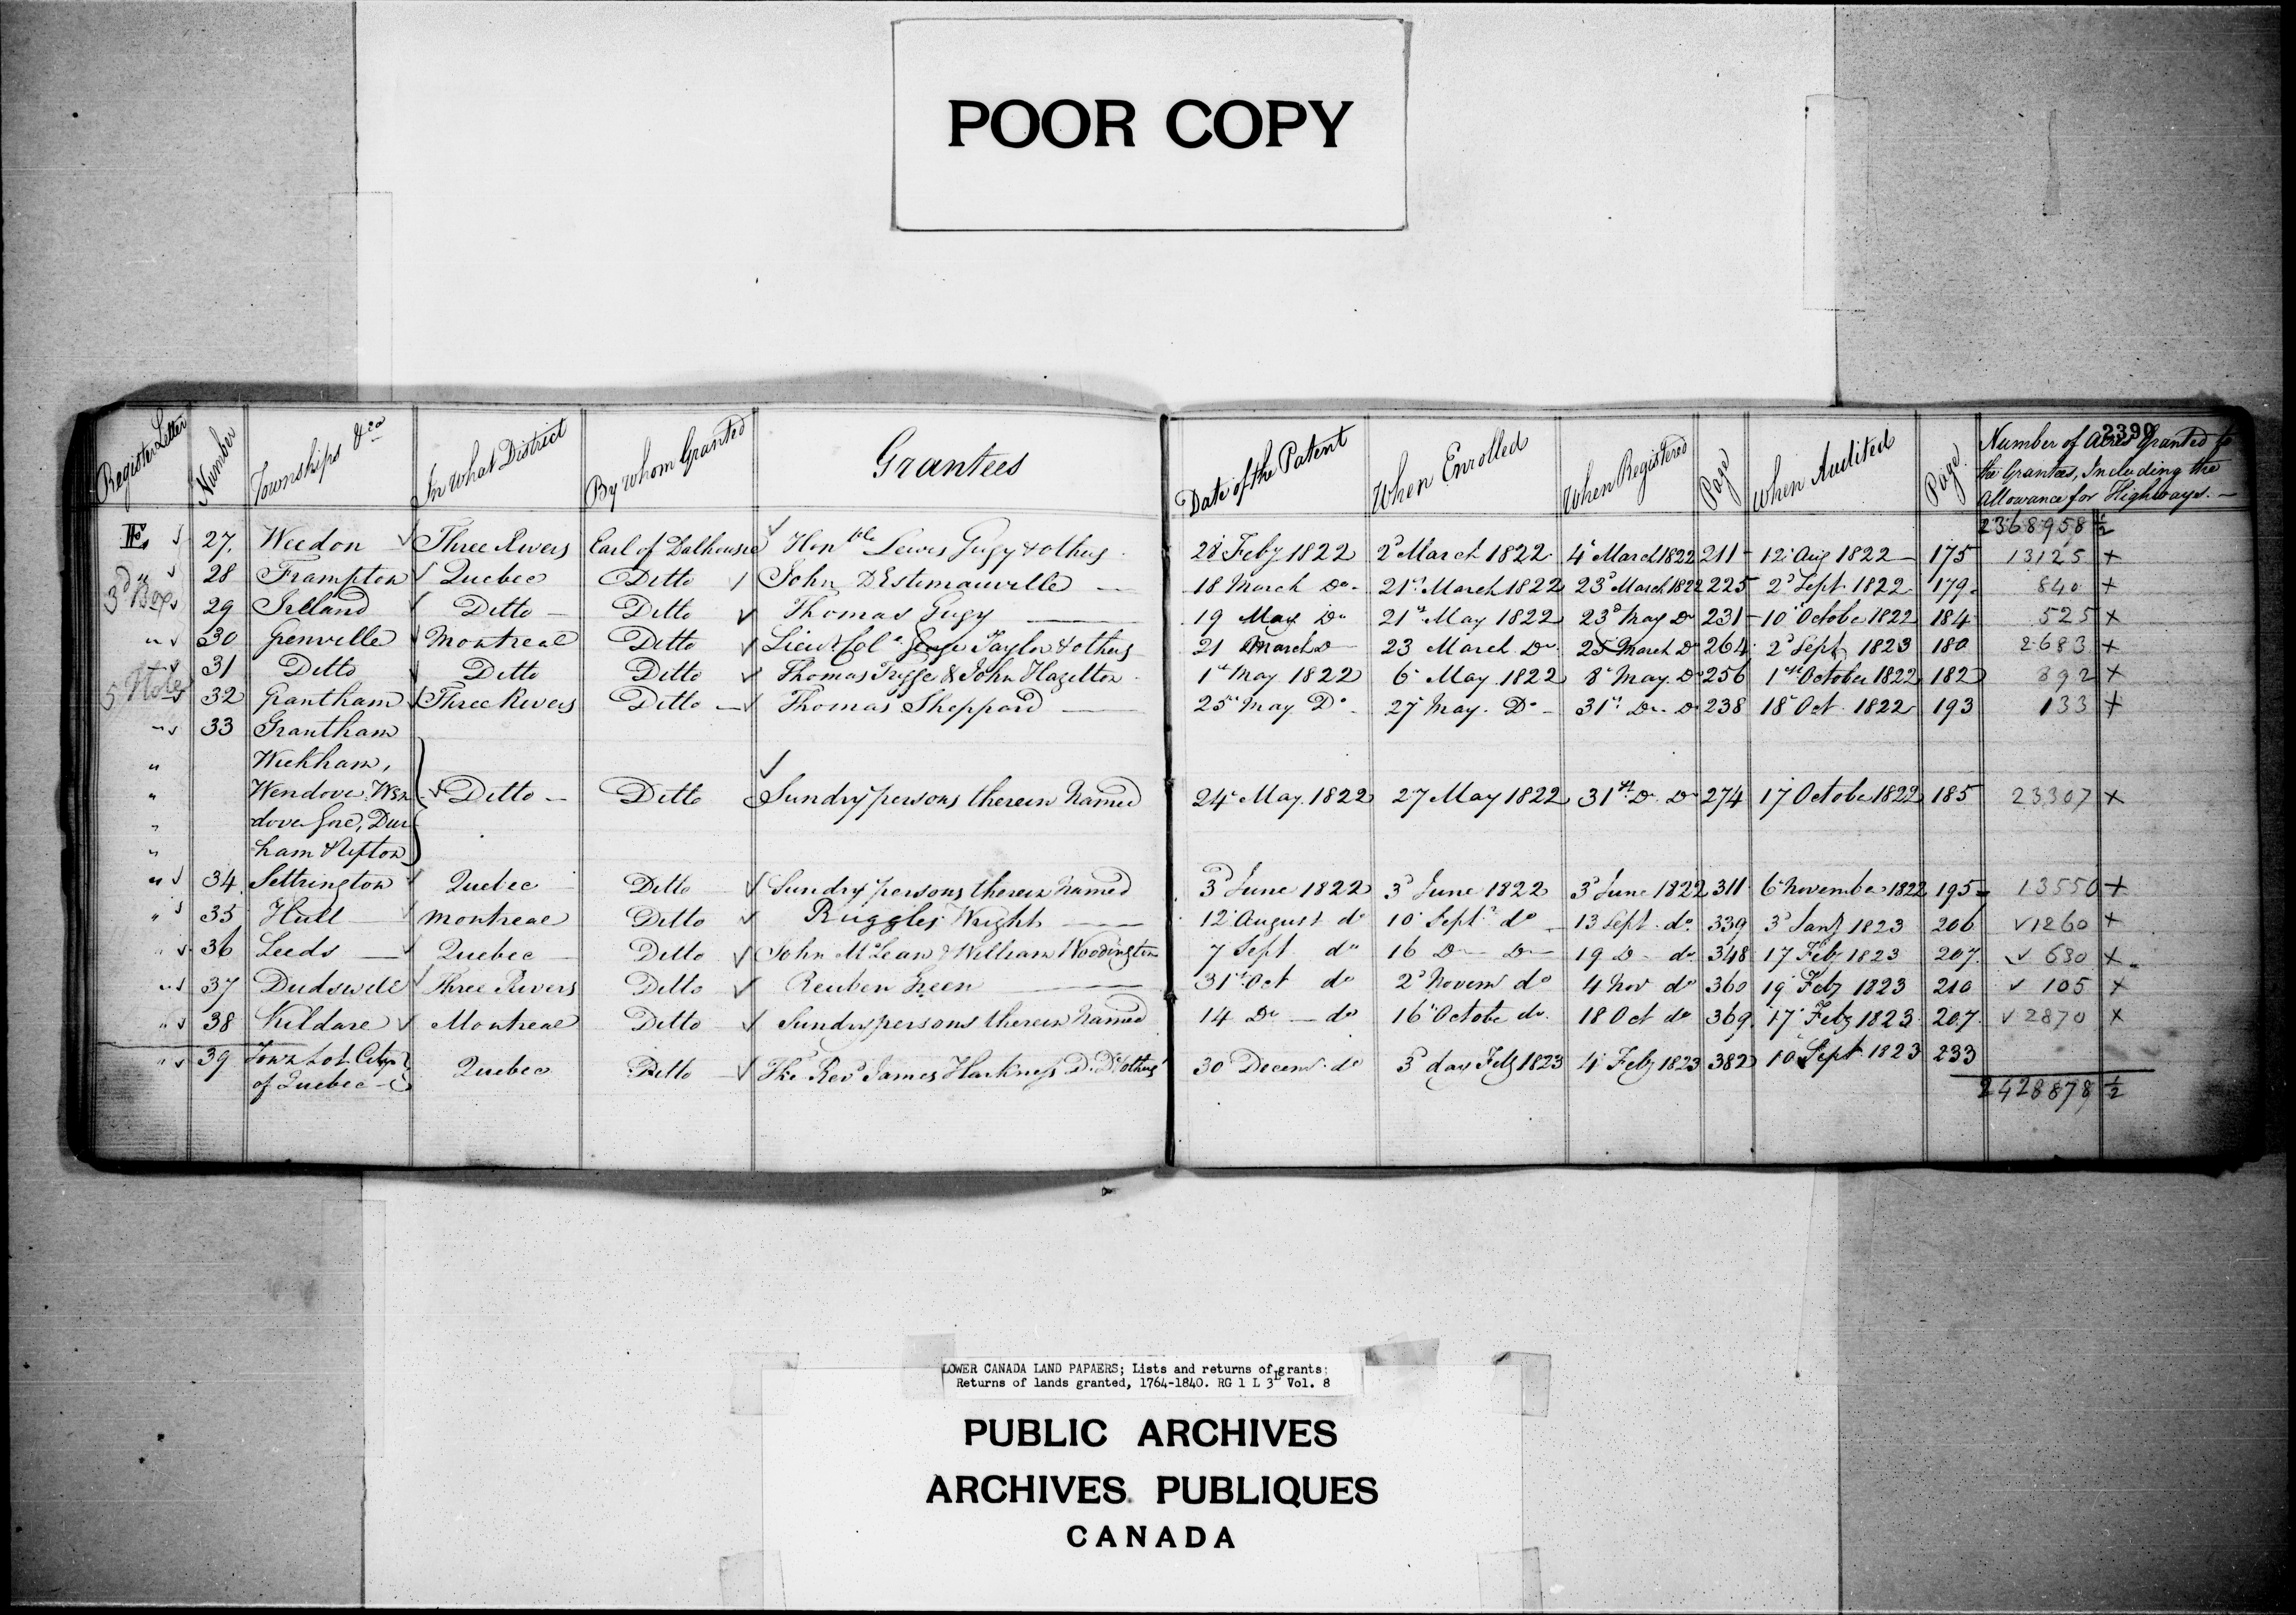 POOR COPY
2390
Register Letter Number Townships &ca In What District By whom Granted Grantees Date of the Patent When Enrolled When Registered Page When Audited Page Number of Acres Granted to the Grantees, Including the Allowance for Highways. —
2368958 ½
27. Weedon Three Rivers Earl of Dalhousie Honble Lewis Gugy & others 28 Feby 1822 2d March 1822 4 March 1822 211 12 Aug 1822 175 13125 +
" 28 Frampton Quebec Ditto John D'Estimauville 18 March Do 21st March 1822 23d March 1822 225 2d Sept 1822 179 840 +
3d Box 29 Ireland Ditto Ditto Thomas Gugy 19 May Do 21st May 1822 23d May Do 231 10 October 1822 184 525 +
" 30 Grenville Montreal Ditto Lieut Col George Taylor & others 21 March Do 23 March Do 25 March Do 264 2d Sept 1823 180 2683 +
" 31 Ditto Ditto Ditto Thomas & John Hazelton 1st May 1822 6 May 1822 8 May Do 256 1st October 1822 182 892 +
32 Grantham Three Rivers Ditto Thomas Sheppard 25 May Do 27 May Do 31st Do Do 238 18 Oct 1822 193 133 +
" 33 Grantham
" Wickham,
" Wendover, Wen- Ditto Ditto Sundry persons therein Named 24 May 1822 27 May 1822 31st Do Do 274 17 October 1822 185 23307 +
" dover Gore, Dur-
" ham & Upton
" 34 Settrington Quebec Ditto Sundry persons therein Named 3d June 1822 3d June 1822 3d June 1822 311 6 November 1822 195 13550 +
" 35 Hull Montreal Ditto Ruggles Wright 12 August do 10 Sept do 13 Sept do 339 3d Jany 1823 206 1260 +
" 36 Leeds Quebec Ditto John McLean & William Woodington 7 Sept do 16 Do Do 19 Do do 348 17 Feby 1823 207 630 +
" 37 Dudswell Three Rivers Ditto Reuben Green 31st Oct do 2d Novem do 4 Nov do 360 19 Feby 1823 210 105 +
" 38 Kildare Montreal Ditto Sundry persons therein Named 14 Do do 16 October do 18 Oct do 369 17 Feby 1823 207 2870 +
" 39 Town Lot City of Quebec Quebec Ditto The Revd James Harkness D.D. & others 30 Decemr do 3d day Feby 1823 4 Feby 1823 382 10 Sept 1823 233
2428878 ½
LOWER CANADA LAND PAPAERS; Lists and returns of grants:
Returns of lands granted, 1764-1840. RG 1 L 3L Vol. 8
PUBLIC ARCHIVES
ARCHIVES PUBLIQUES
CANADA